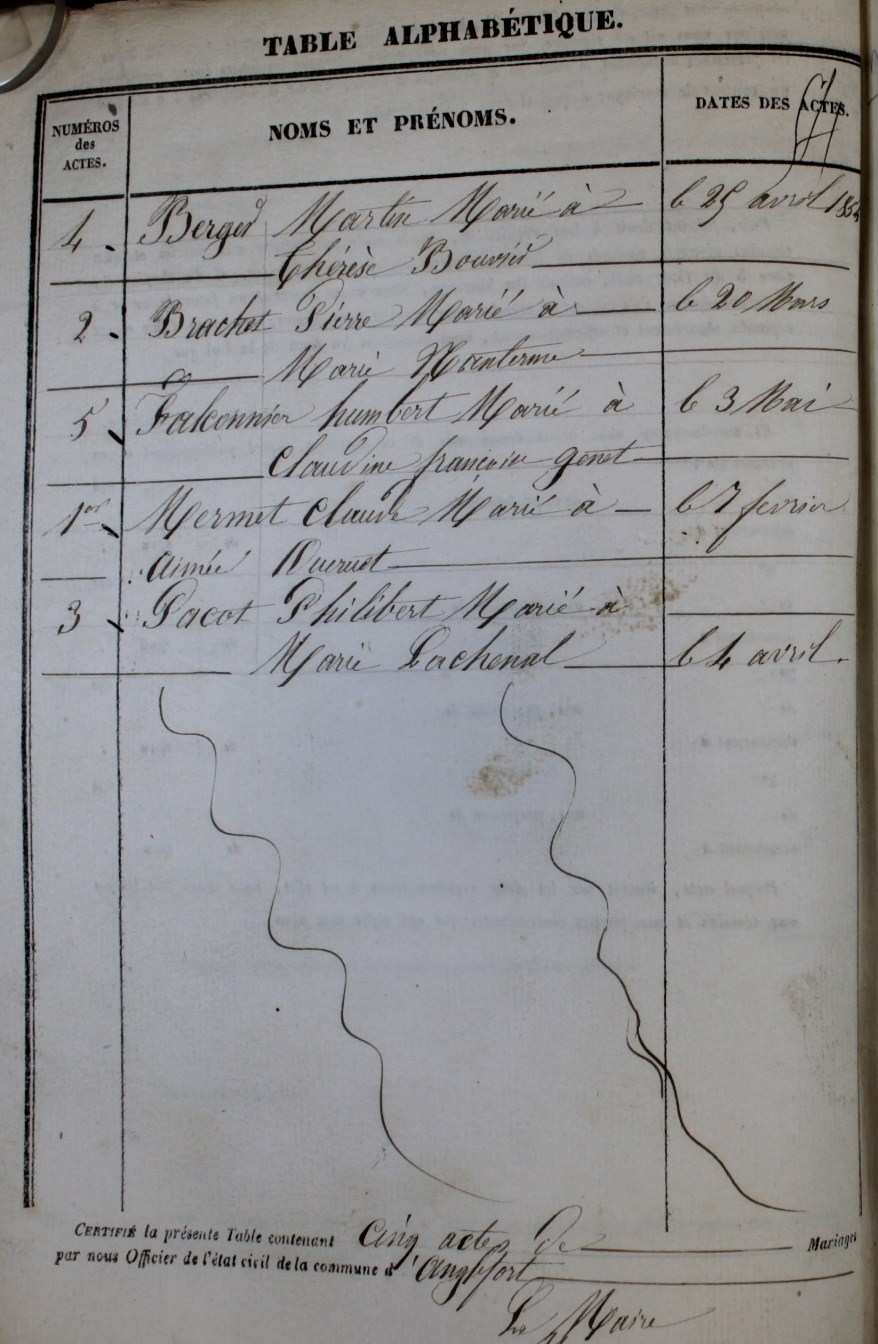 TABLE ALPHABÉTIQUE.
NUMÉROS
des
ACTES.
NOMS ET PRÉNOMS.
DATES DES ACTES.
4. Berger Martin Marié à le 25 avril 1854
Thérèse Bouvier
2. Brachet Pierre Marié à le 20 Mars
Marie
5 Falconnier humbert Marié à le 3 Mai
Claudine francoise genet
1er Mermet Claude Marié à le 7 fevrier
Aimée
3 Pacot Philibert Marié à
Marie Lachenal le 4 avril.
CERTIFIÉ la présente Table contenant Cinq actes de Mariages
par nous Officier de l'état civil de la commune d'Anglefort
Le Maire